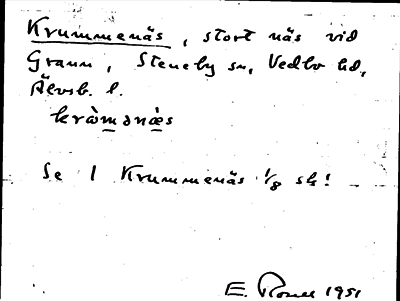 Krummenäs, stort näs vid
Grann, Steneby sn, Vedbo hd,
Älvsb. l.
kròmənæ̀s
Se 1 Krummenäs 1/8 sk!
E. 1951